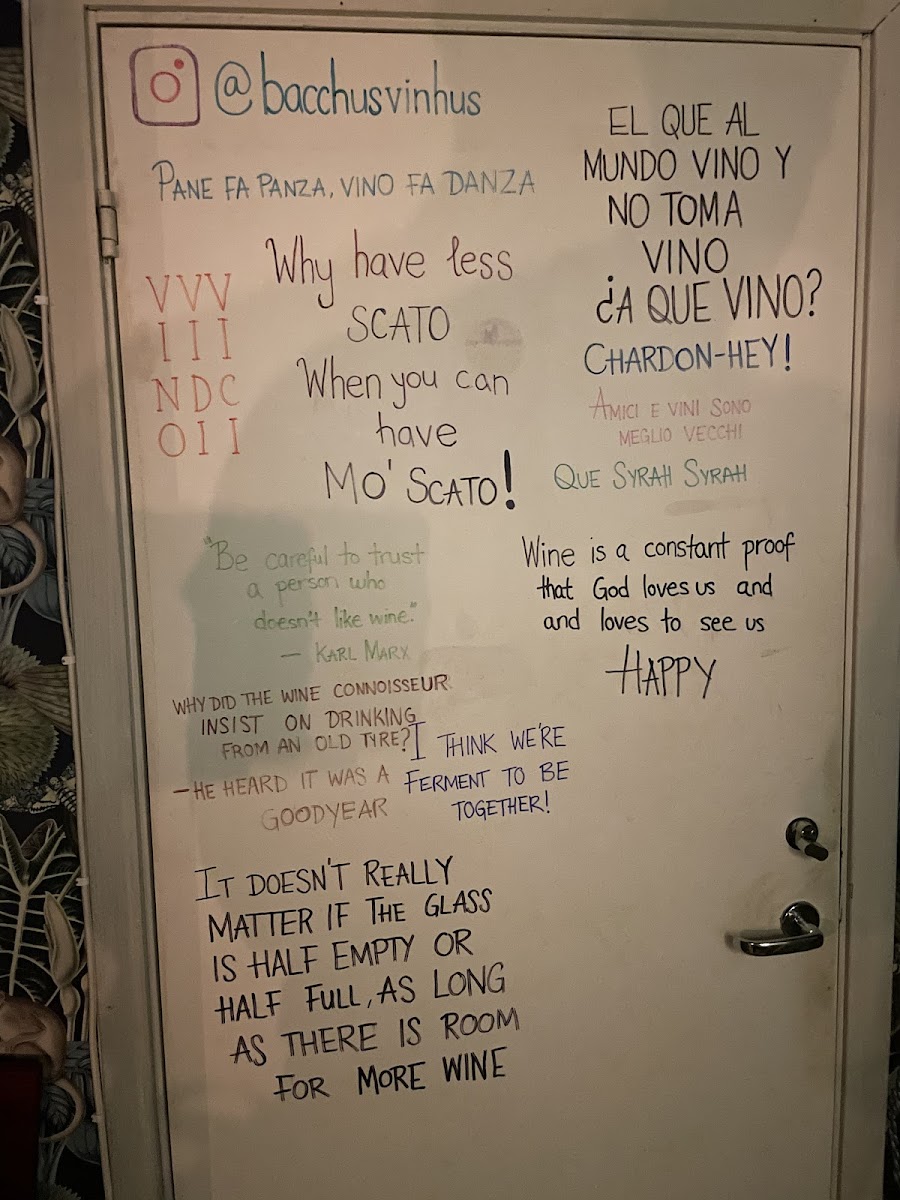 @bacchusvinhus
PANE FA PANZA, VINO FA DANZA
VVV
III
NDC
OII
Why have less
SCATO
When you can
have
MO' SCATO!
EL QUE AL
MUNDO VINO Y
NO TOMA
VINO
¿A QUE VINO?
CHARDON-HEY!
AMICI E VINI SONO
MEGLIO VECCHI
QUE SYRAH SYRAH
"Be careful to trust
a person who
doesn't like wine."
— KARL MARX
Wine is a constant proof
that God loves us and
and loves to see us
HAPPY
WHY DID THE WINE CONNOISSEUR
INSIST ON DRINKING
FROM AN OLD TYRE?
—HE HEARD IT WAS A
GOODYEAR
I THINK WE'RE
FERMENT TO BE
TOGETHER!
IT DOESN'T REALLY
MATTER IF THE GLASS
IS HALF EMPTY OR
HALF FULL, AS LONG
AS THERE IS ROOM
FOR MORE WINE